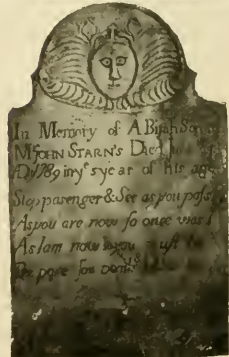 In Memory of ABijah Son
Mr JOHN STARN'S Died
1789 in ye 5 year of his age
Stop pasenger & See as you pass
As you are now so once was I
As I am now you must